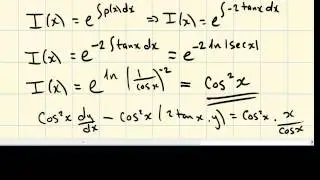 I(x) = e^{∫p(x)dx} ⇒ I(x) = e^{∫-2tanx dx}
I(x) = e^{-2∫tanx dx} = e^{-2ln|secx|}
I(x) = e^{ln(1/cosx)^{-2}} = cos²x
cos²x dy/dx - cos²x(2tanx.y) = cos²x · x/cosx